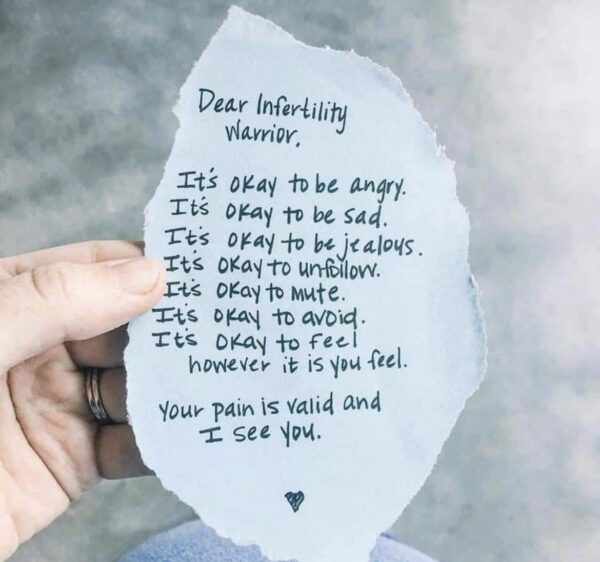 Dear Infertility
Warrior,
It's okay to be angry.
It's okay to be sad.
It's okay to be jealous.
It's okay to unfollow.
It's okay to mute.
It's okay to avoid.
It's okay to feel
however it is you feel.
Your pain is valid and
I see you.